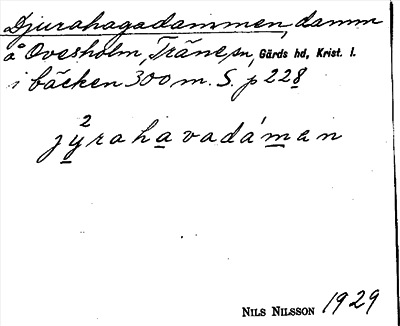 Djurahagadammen, damm
å Ovesholm, Träne sn, Gärds hd, Krist. l.
i bäcken 300 m. S. p 228
2
jyrahavadáman
NILS NILSSON 1929